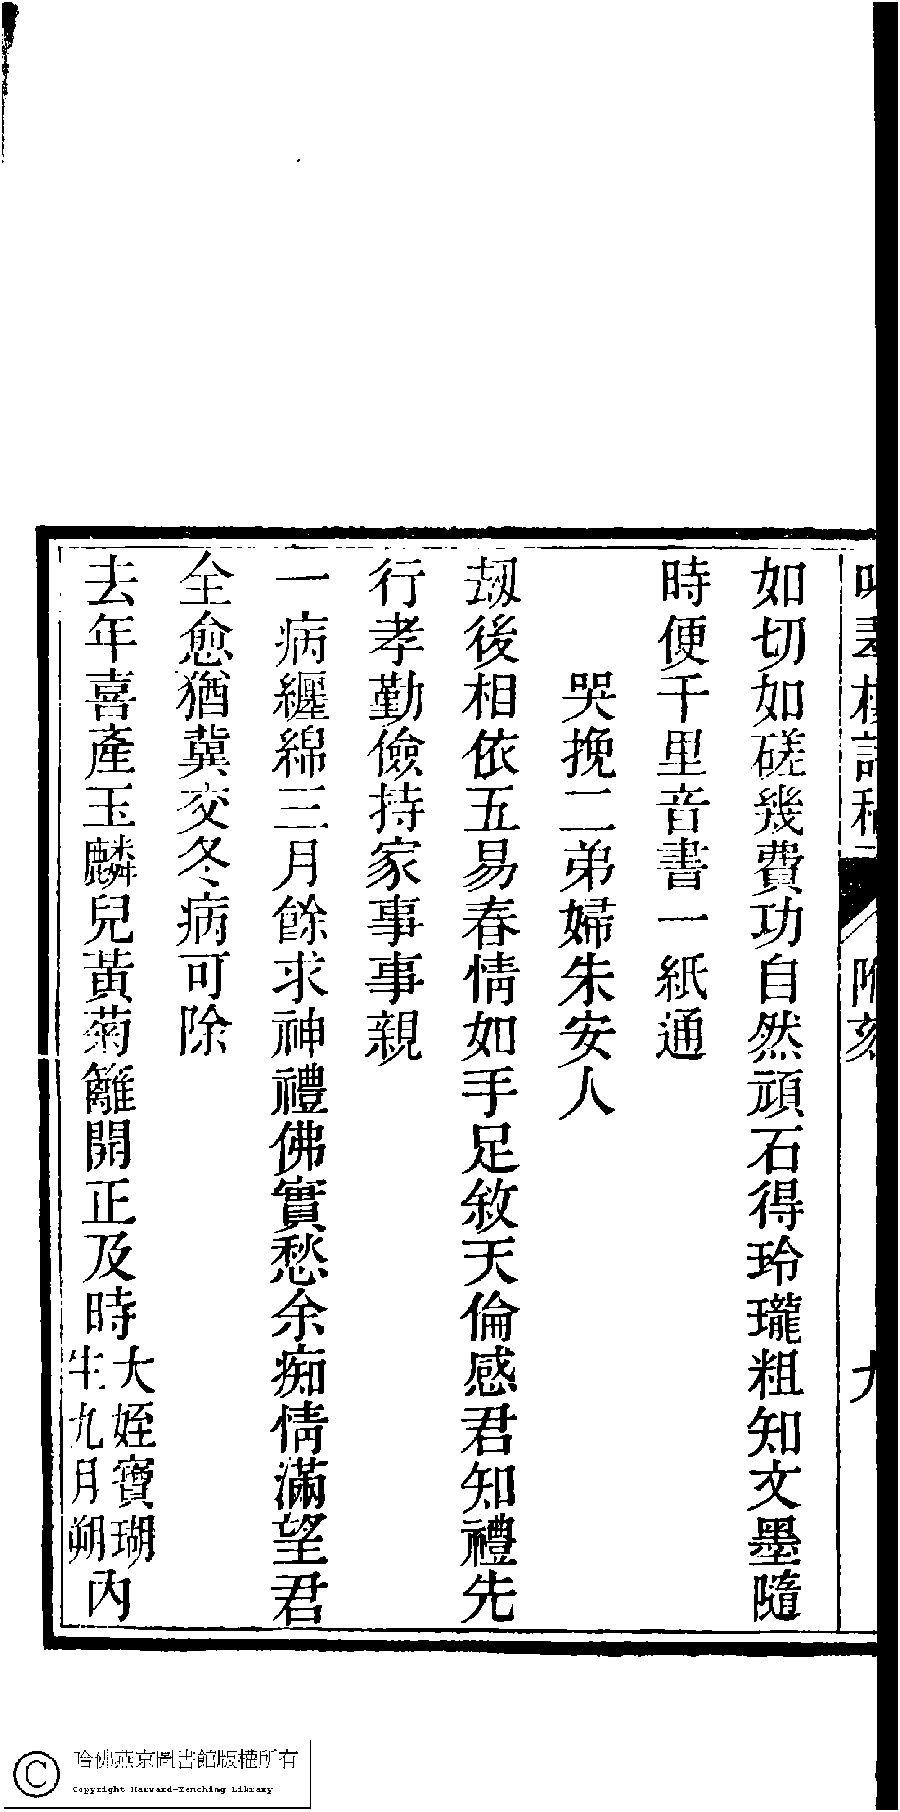 如切如磋幾費功自然頑石得玲瓏粗知文墨隨
時便千里音書一紙通
哭挽二弟婦朱安人
刼後相依五易春情如手足敘天倫感君知禮先
行孝勤儉持家事事親
一病纏綿三月餘求神禮佛實愁余痴情滿望君
全愈猶冀交冬病可除
去年喜產玉麟兒黃菊籬開正及時大姪寶瑚生九月朔內
哈佛燕京圖書館版權所有
Copyright Harvard-Yenching Library